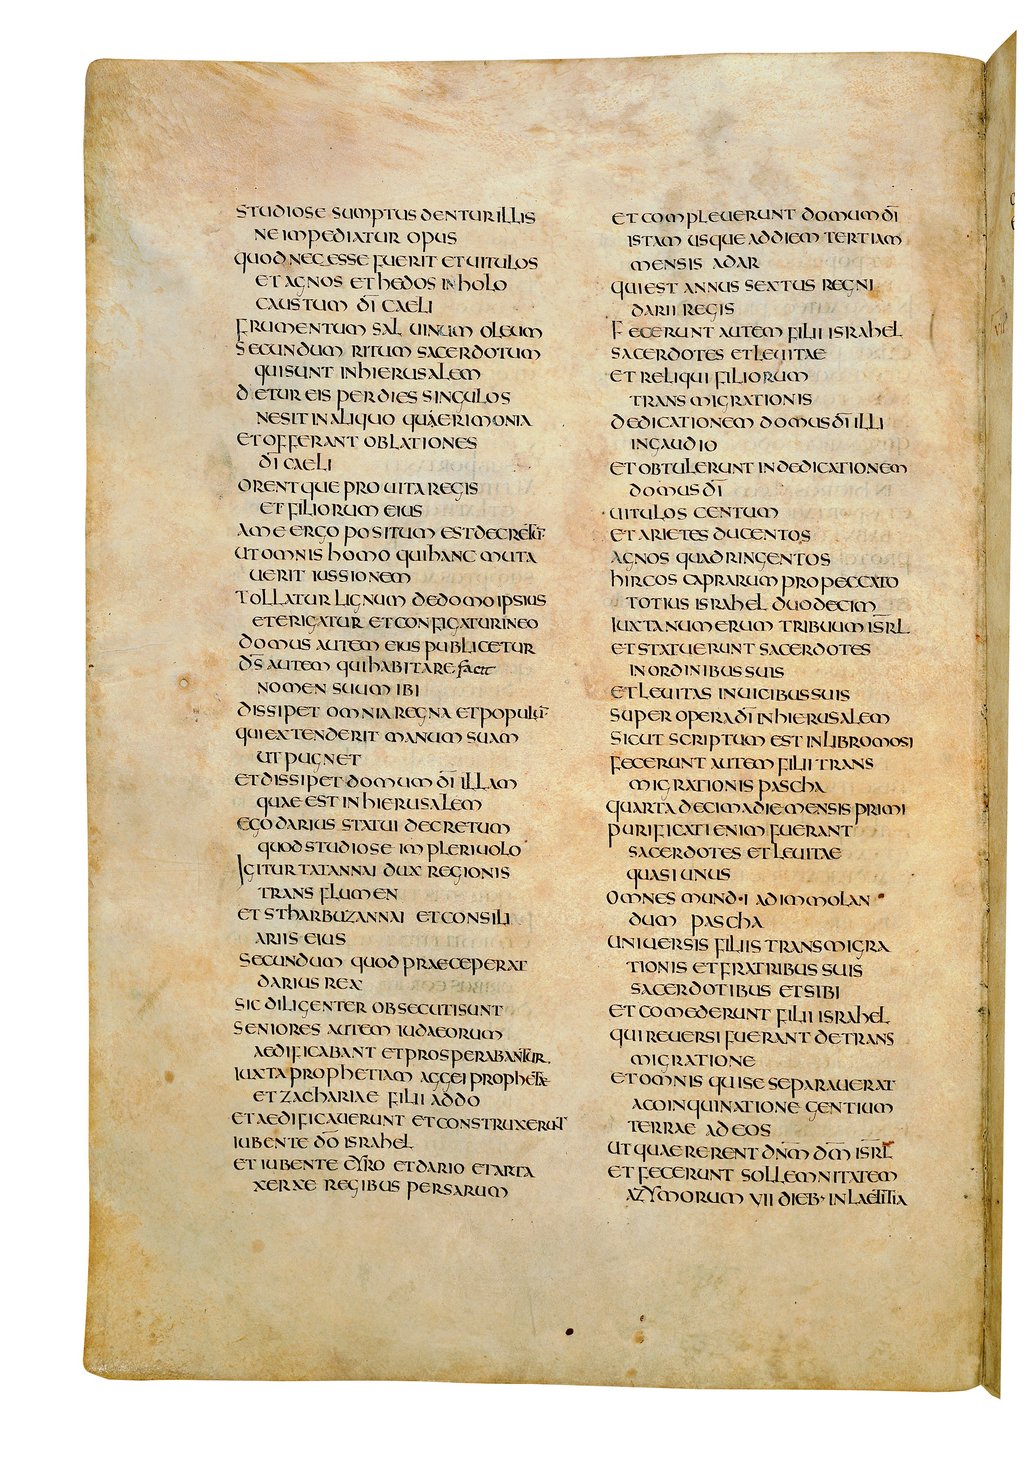 STUDIOSE SUMPTUS DENTUR ILLIS
NE IMPEDIATUR OPUS
QUOD NECESSE FUERIT ET UITULOS
ET AGNOS ET HEDOS IN HOLO
CAUSTUM D̅I CAELI
FRUMENTUM SAL UINUM OLEUM
SECUNDUM RITUM SACERDOTUM
QUI SUNT IN HIERUSALEM
DETUR EIS PER DIES SINGULOS
NE SIT IN ALIQUO QUAERIMONIA
ET OFFERANT OBLATIONES
D̅I CAELI
ORENTQUE PRO UITA REGIS
ET FILIORUM EIUS
A ME ERGO POSITUM EST DECRETU̅
UT OMNIS HOMO QUI HANC MUTA
UERIT IUSSIONEM
TOLLATUR LIGNUM DE DOMO IPSIUS
ET ERIGATUR ET CONFIGATUR IN EO
DOMUS AUTEM EIUS PUBLICETUR
D̅S AUTEM QUI HABITARE facit
NOMEN SUUM IBI
DISSIPET OMNIA REGNA ET POPULU̅
QUI EXTENDERIT MANUM SUAM
UT PUGNET
ET DISSIPET DOMUM D̅I ILLAM
QUAE EST IN HIERUSALEM
EGO DARIUS STATUI DECRETUM
QUOD STUDIOSE IMPLERI UOLO
IGITUR TATANNAI DUX REGIONIS
TRANS FLUMEN
ET STHARBUZANNAI ET CONSILI
ARIIS EIUS
SECUNDUM QUOD PRAECEPERAT
DARIUS REX
SIC DILIGENTER OBSECUTI SUNT
SENIORES AUTEM IUDAEORUM
AEDIFICABANT ET PROSPERABANTUR
IUXTA PROPHETIAM AGGEI PROPHETAE
ET ZACHARIAE FILII ADDO
ET AEDIFICAUERUNT ET CONSTRUXERUNT
IUBENTE D̅O ISRAHEL
ET IUBENTE CYRO ET DARIO ET ARTA
XERXE REGIBUS PERSARUM
ET COMPLEUERUNT DOMUM D̅I
ISTAM USQUE AD DIEM TERTIAM
MENSIS ADAR
QUI EST ANNUS SEXTUS REGNI
DARII REGIS
FECERUNT AUTEM FILII ISRAHEL
SACERDOTES ET LEUITAE
ET RELIQUI FILIORUM
TRANSMIGRATIONIS
DEDICATIONEM DOMUS D̅I ILLI
IN GAUDIO
ET OBTULERUNT IN DEDICATIONEM
DOMUS D̅I
UITULOS CENTUM
ET ARIETES DUCENTOS
AGNOS QUADRINGENTOS
HIRCOS CAPRARUM PRO PECCATO
TOTIUS ISRAHEL DUODECIM
IUXTA NUMERUM TRIBUUM IS̅RL
ET STATUERUNT SACERDOTES
IN ORDINIBUS SUIS
ET LEUITAS IN UICIBUS SUIS
SUPER OPERA D̅I IN HIERUSALEM
SICUT SCRIPTUM EST IN LIBRO MOSI
FECERUNT AUTEM FILII TRANS
MIGRATIONIS PASCHA
QUARTA DECIMA DIE MENSIS PRIMI
PURIFICATI ENIM FUERANT
SACERDOTES ET LEUITAE
QUASI UNUS
OMNES MUNDI AD IMMOLAN
DUM PASCHA
UNIUERSIS FILIIS TRANSMIGRA
TIONIS ET FRATRIBUS SUIS
SACERDOTIBUS ET SIBI
ET COMEDERUNT FILII ISRAHEL
QUI REUERSI FUERANT DE TRANS
MIGRATIONE
ET OMNIS QUI SE SEPARAUERAT
A COINQUINATIONE GENTIUM
TERRAE AD EOS
UT QUAERERENT D̅N̅M D̅M IS̅RL
ET FECERUNT SOLLEMNITATEM
AZYMORUM VII DIEB· IN LAETITIA